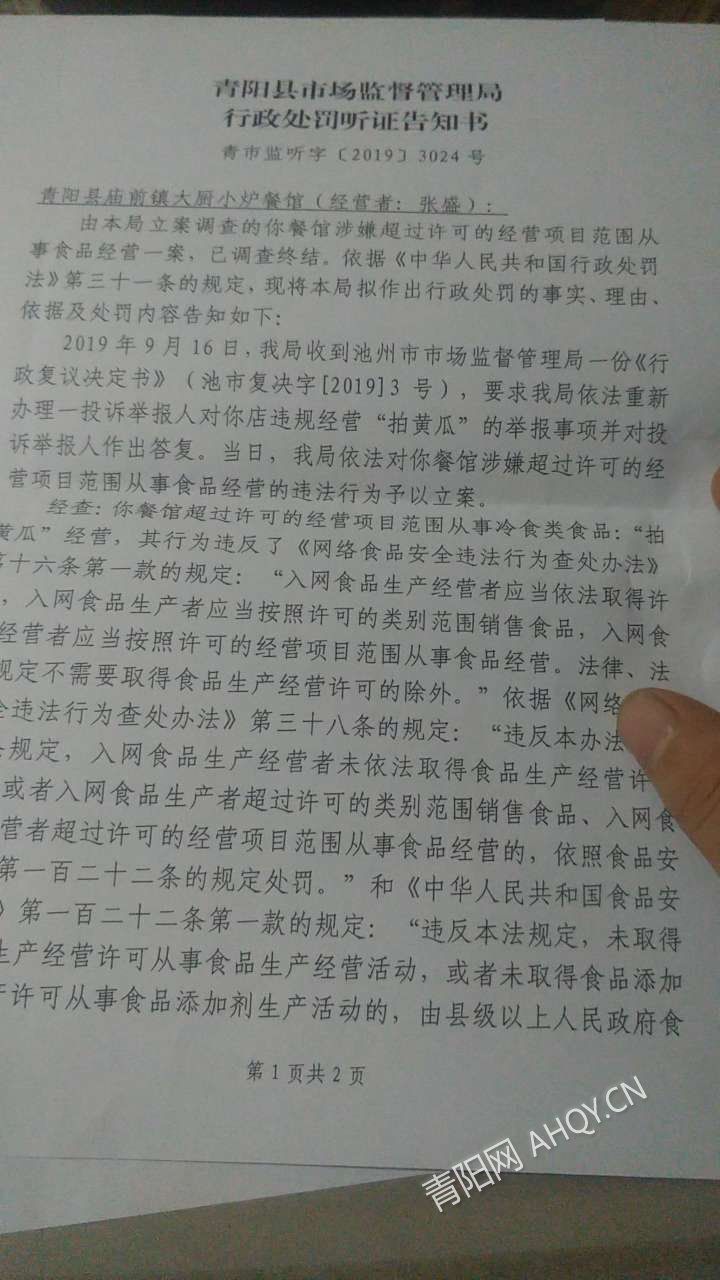 青阳县市场监督管理局
行政处罚听证告知书
青市监听字〔2019〕3024号
青阳县庙前镇大厨小炉餐馆(经营者:张盛):
由本局立案调查的你餐馆涉嫌超过许可的经营项目范围从
事食品经营一案,已调查终结。依据《中华人民共和国行政处罚
法》第三十一条的规定,现将本局拟作出行政处罚的事实、理由、
依据及处罚内容告知如下:
2019年9月16日,我局收到池州市市场监督管理局一份《行
政复议决定书》(池市复决字[2019]3 号),要求我局依法重新
办理一投诉举报人对你店违规经营“拍黄瓜”的举报事项并对投
诉举报人作出答复。当日,我局依法对你餐馆涉嫌超过许可的经
营项目范围从事食品经营的违法行为予以立案。
经查:你餐馆超过许可的经营项目范围从事冷食类食品:“拍
黄瓜”经营,其行为违反了《网络食品安全违法行为查处办法》
第十六条第一款的规定:“入网食品生产经营者应当依法取得许
,入网食品生产者应当按照许可的类别范围销售食品,入网食
经营者应当按照许可的经营项目范围从事食品经营。法律、法
规定不需要取得食品生产经营许可的除外。”依据《网络
全违法行为查处办法》第三十八条的规定:“违反本办法
条规定,入网食品生产经营者未依法取得食品生产经营许
或者入网食品生产者超过许可的类别范围销售食品、入网食
营者超过许可的经营项目范围从事食品经营的,依照食品安
第一百二十二条的规定处罚。”和《中华人民共和国食品安
》第一百二十二条第一款的规定:“违反本法规定,未取得
生产经营许可从事食品生产经营活动,或者未取得食品添加
产许可从事食品添加剂生产活动的,由县级以上人民政府食
第1页共2页
青阳网 AHQY.CN